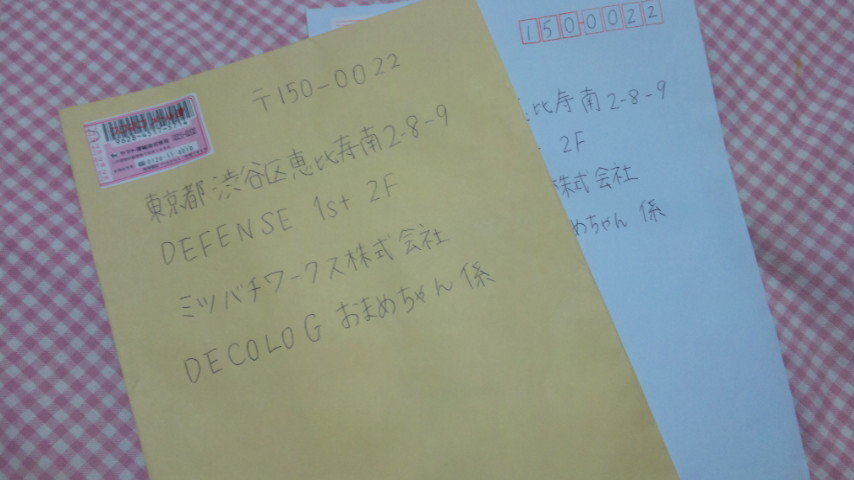 〒150-0022
東京都渋谷区恵比寿南2-8-9
DEFENSE 1st 2F
ミツバチワークス株式会社
DECOLOG おまめちゃん係
ヤマト運輸株式会社
1500022
比寿南2-8-9
2F
株式会社
めちゃん係